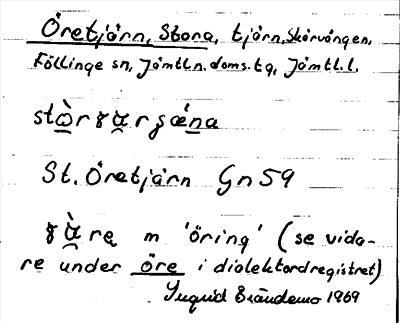 Öretjärn, Stora, tjärn, Skärvången,
Föllinge sn, Jämtl.n. doms.tg, Jämtl.l.
St. Öretjärn Gn 59
m 'öring' (se vida-
re under öre i dialektordregistret)
Ingrid Brändemo 1969